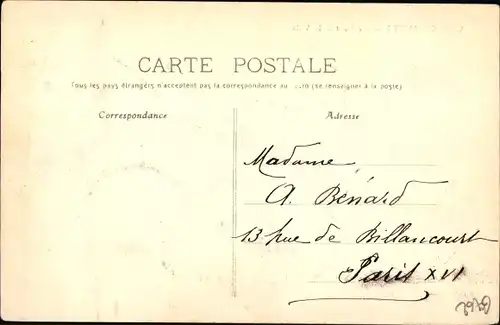 CARTE POSTALE
Tous les pays étrangers n'acceptent pas la correspondance au (se renseigner à la poste)
Correspondance
Adresse
Madame
A. Bénard
13 rue de Billancourt
Paris XVI